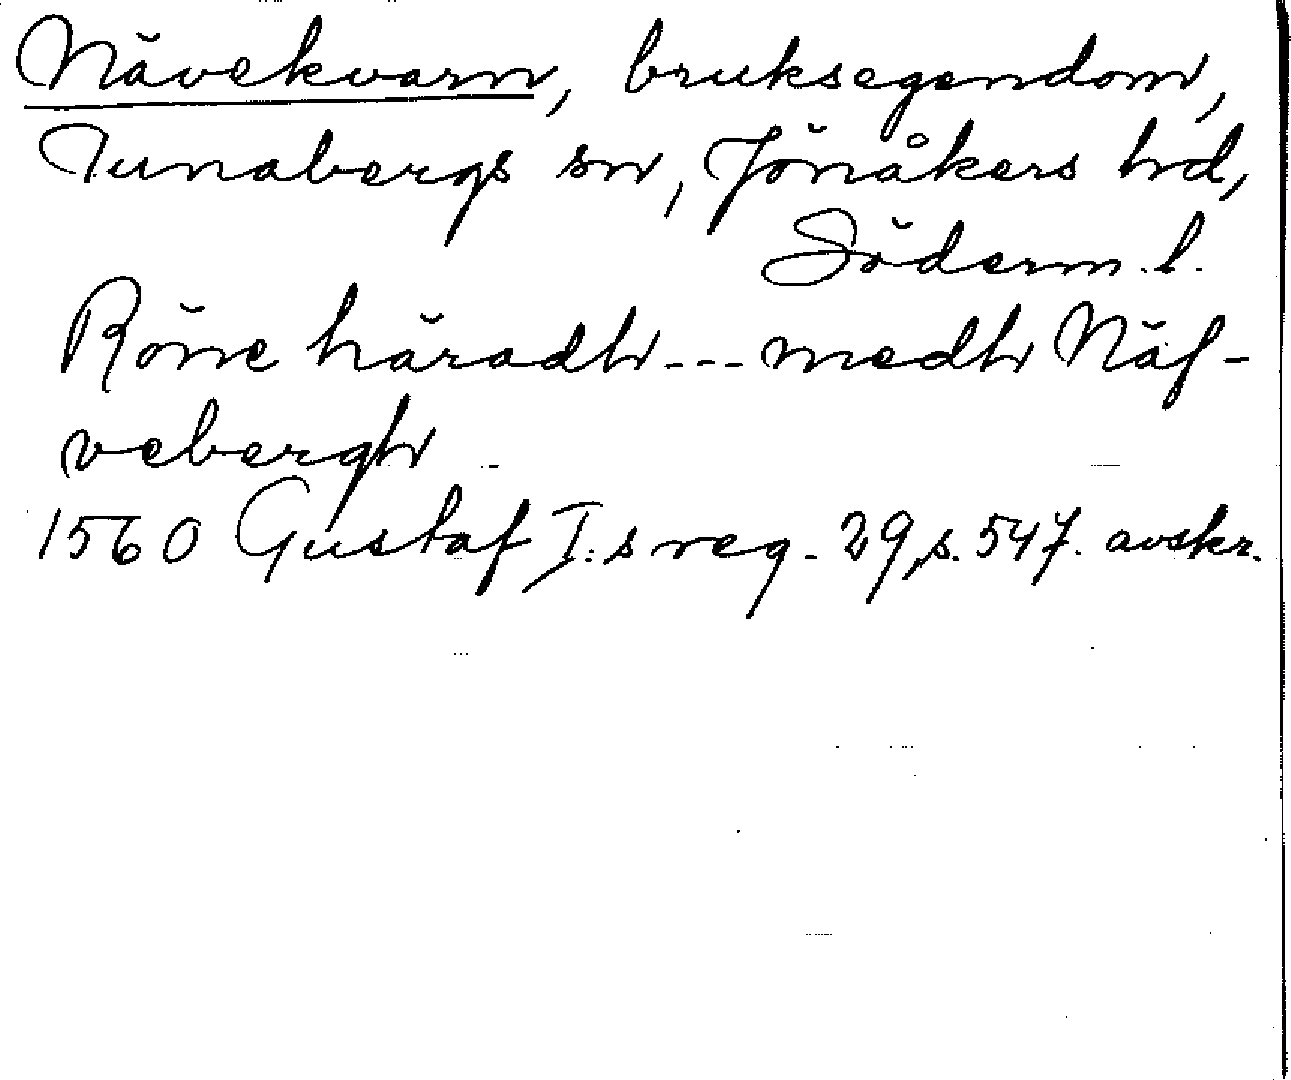 Nävekvarn, bruksegendom,
Tunabergs sn, Jönåkers hd,
Söderm. l.
Röne häradh --- medh Näf-
vebergh
1560 Gustaf I:s reg. 29, s. 547. avskr.